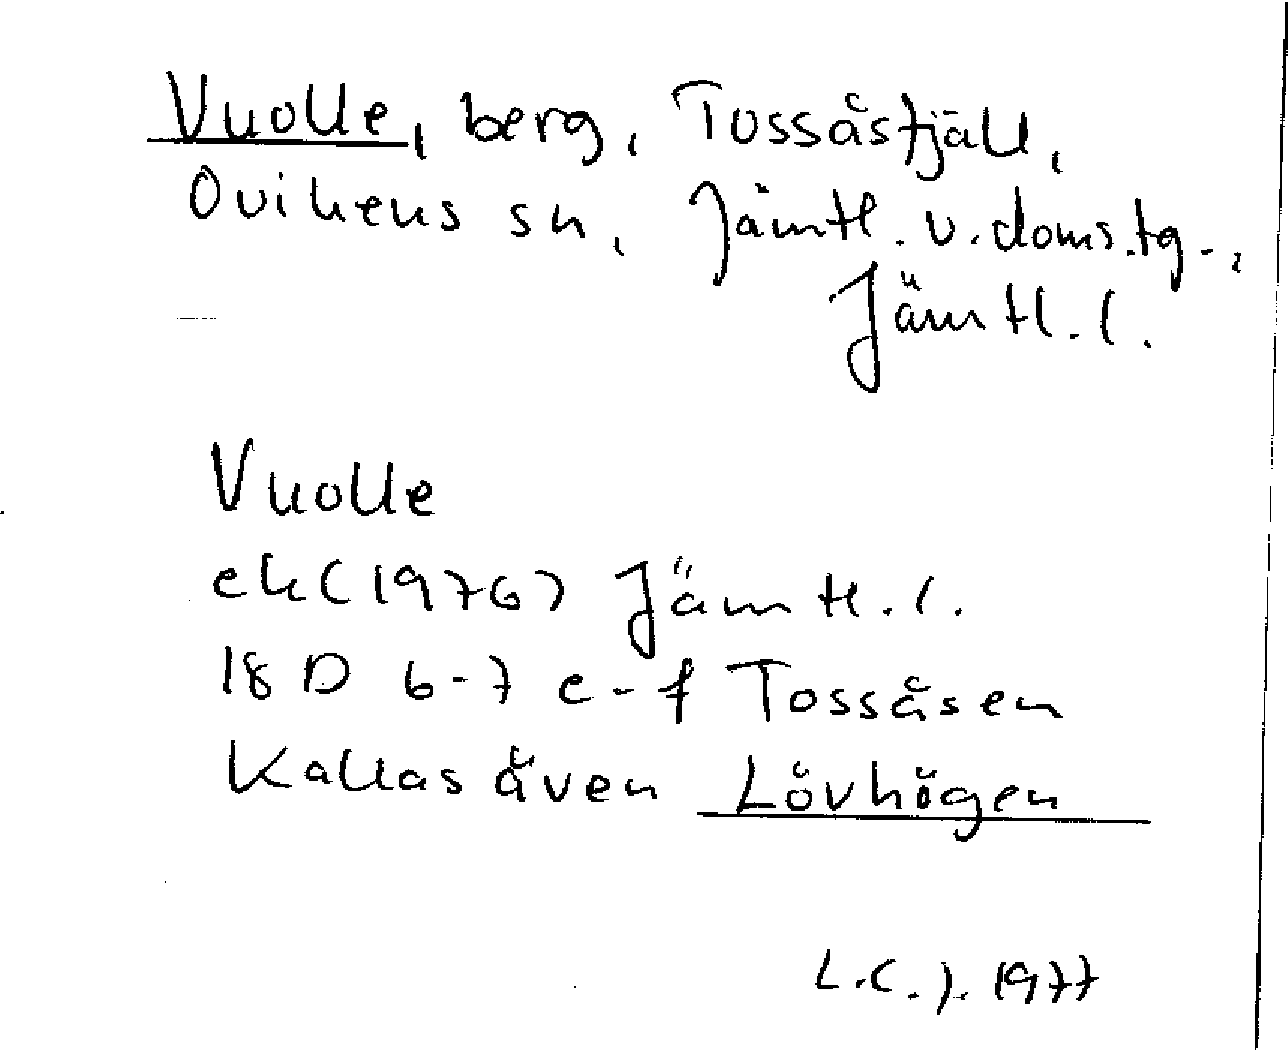 Vuolle, berg, Tossåsfjäll,
Ovikens sn, Jämtl. v. doms.tg.,
Jämtl. l.
Vuolle
ek (1976) Jämtl. l.
18 D 6-7 e-f Tossåsen
Kallas även Lövhögen
L.C.J. 1977